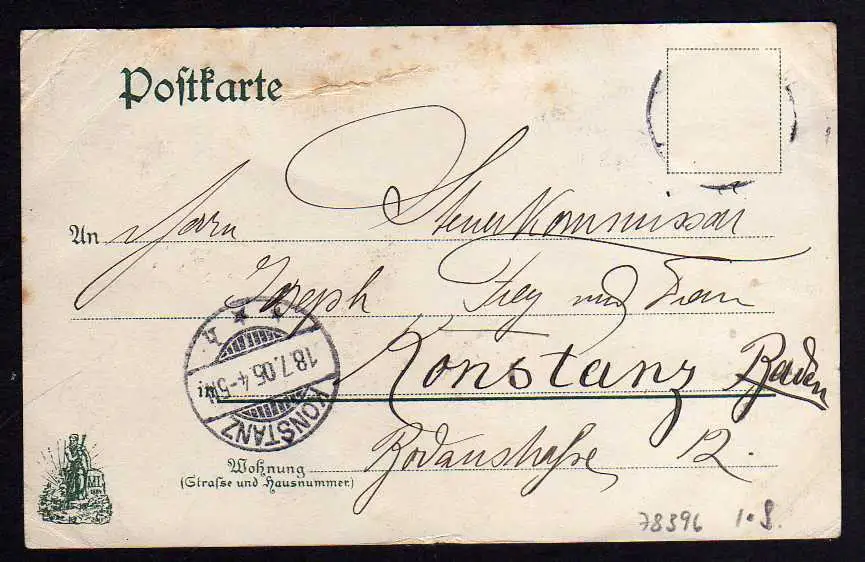 Postkarte
An Herrn Steuerkommissär
Joseph Frey und Frau
Konstanz Baden
Bodanstraße 12.
Wohnung
(Strasse und Hausnummer.)
KONSTANZ
18.7.06. 4-5N.
* * h
78396 1.S.